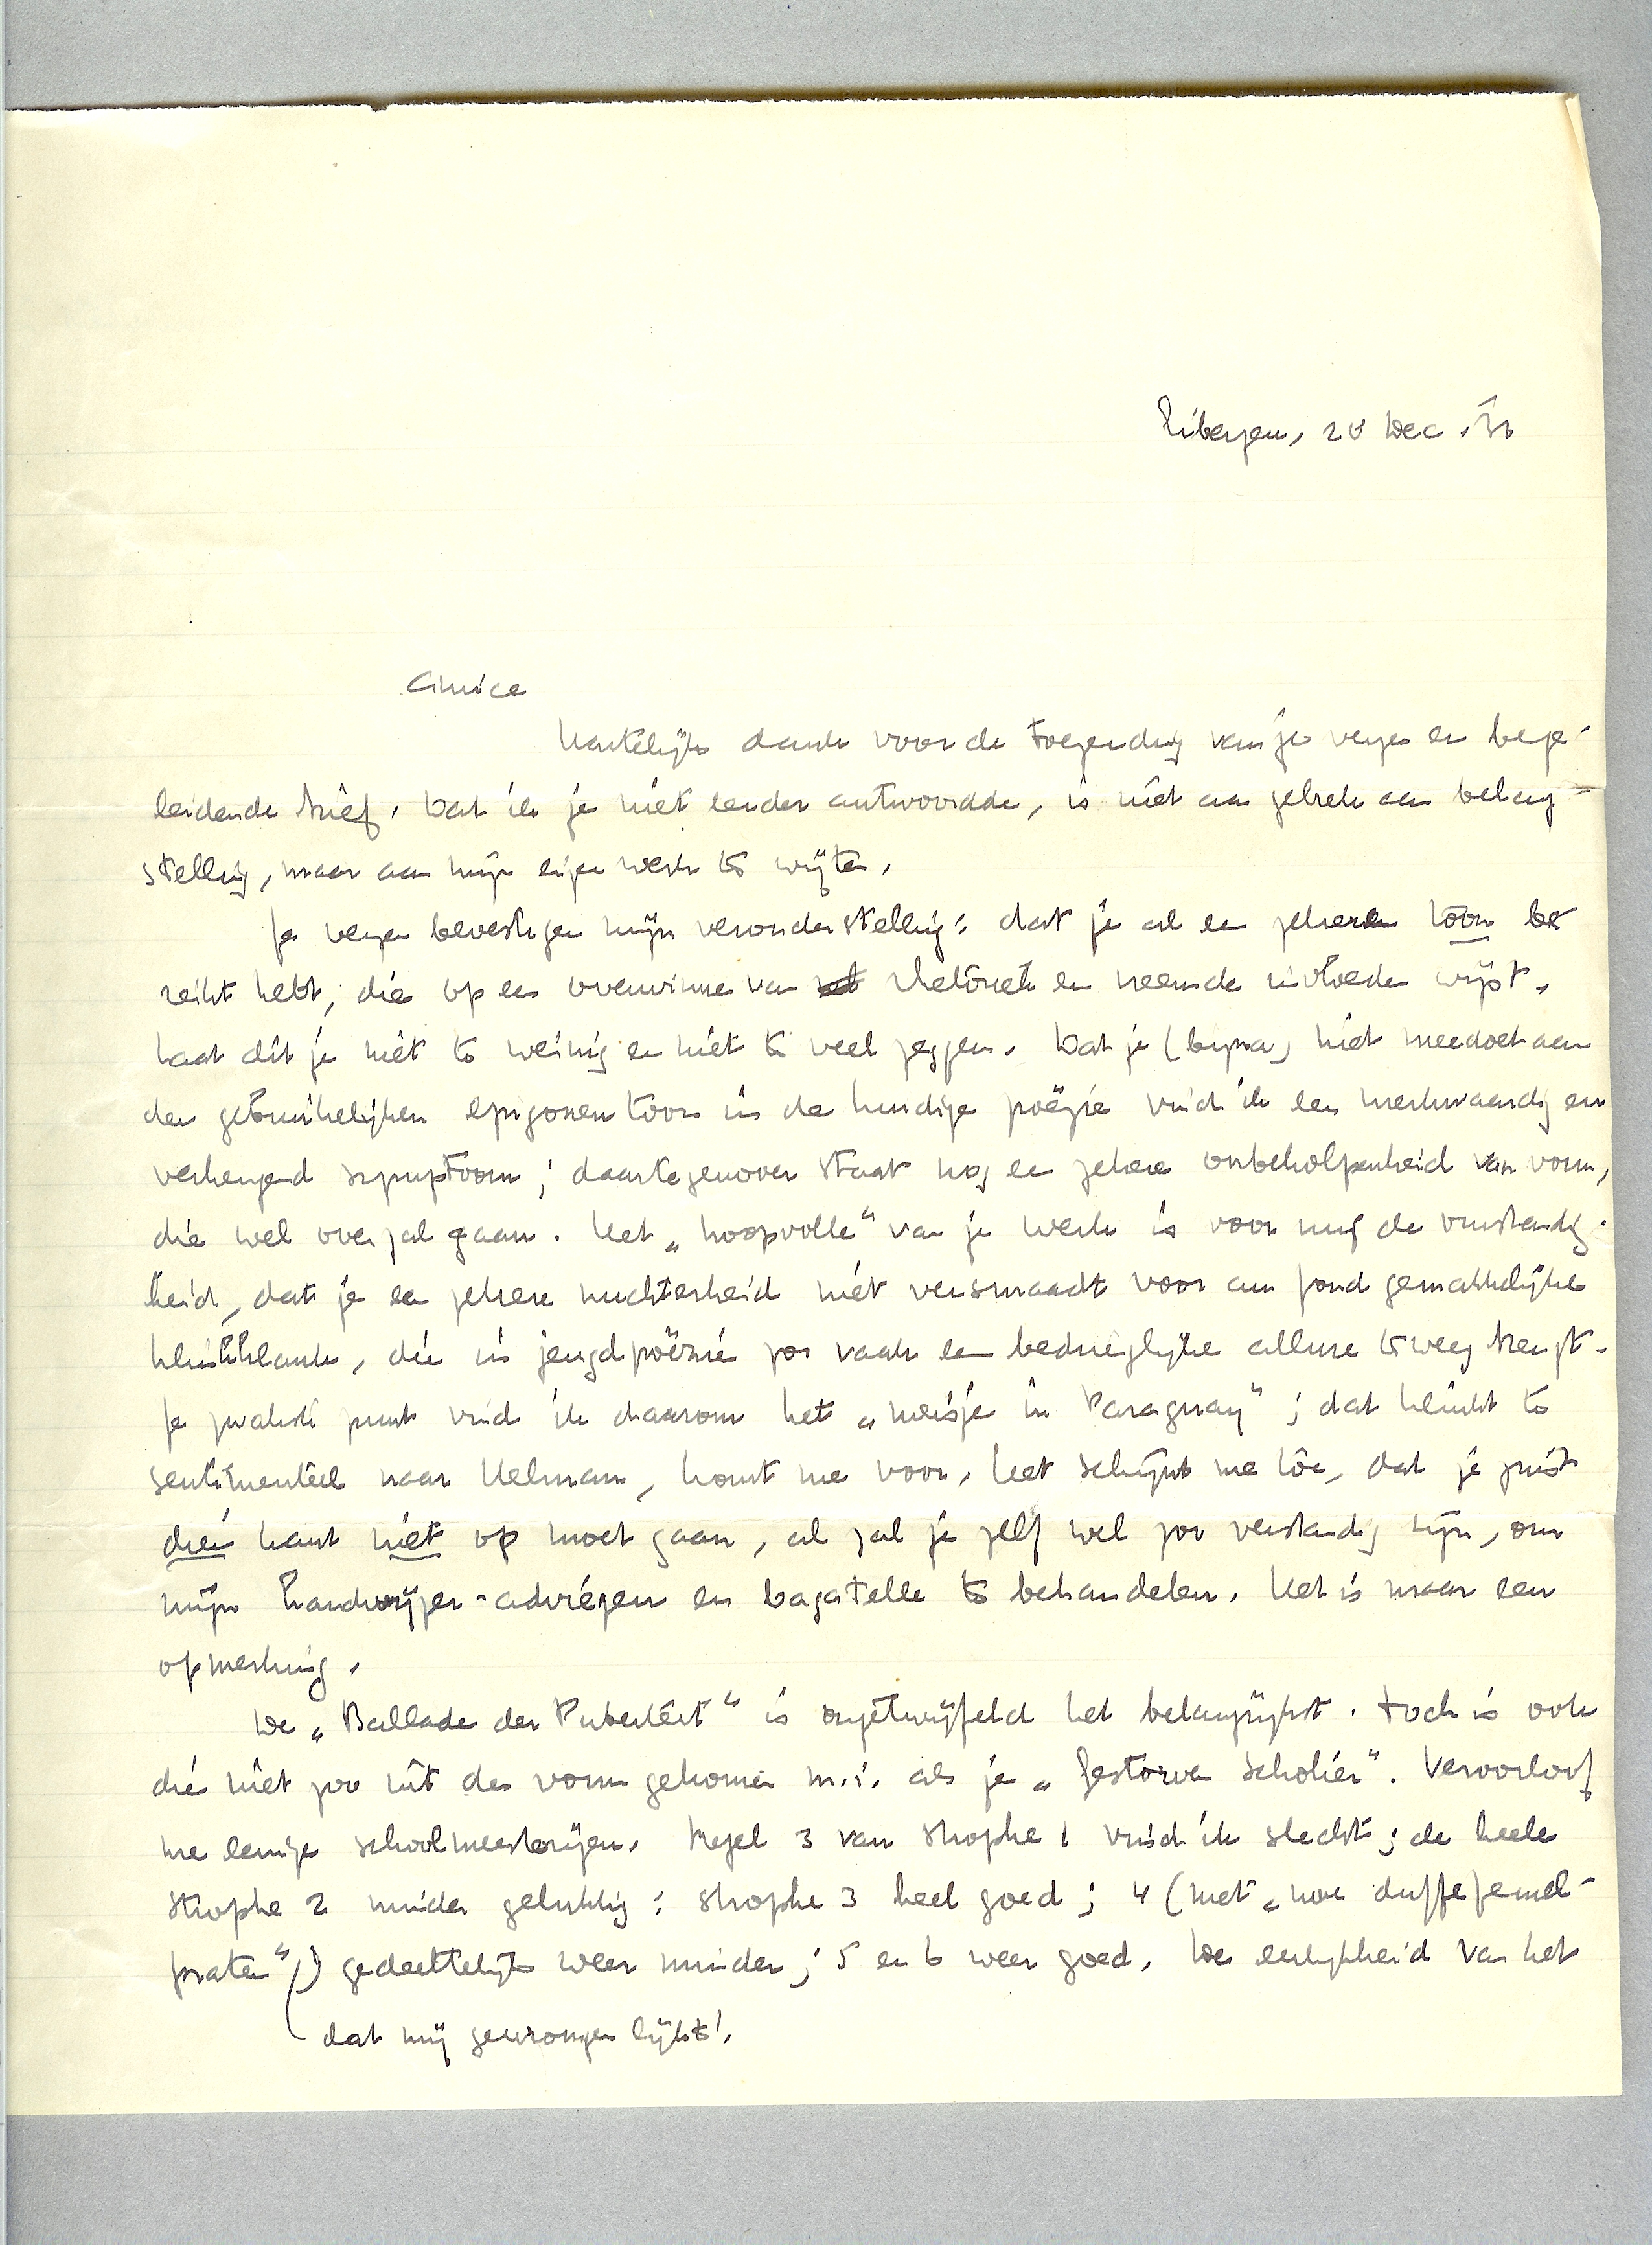 Eibergen, 20 Dec. '30
Amice
Hartelijk dank voor de toezending van je verzen en bege-
leidende brief. Dat ik je niet eerder antwoordde, is niet aan gebrek aan belang-
stelling, maar aan mijn eigen werk te wijten.
Je verzen bevestigen mijn veronderstelling: dat je al een zekeren toon be
reikt hebt, die op een overwinnen van rhetoriek en vreemde invloeden wijst.
Laat dit je niet te weinig en niet te veel zeggen. Dat je (bijna) niet meedoet aan
den gebruikelijken epigonentoon in de huidige poëzie vind ik een merkwaardig en
verheugend symptoom; daartegenover staat nog een zekere onbeholpenheid van vorm,
die wel over zal gaan. Het „hoopvolle" van je werk is voor mij de omstandig-
heid, dat je een zekere nuchterheid niet versmaadt voor een fond gemakkelijke
klinkklank, die in jeugdpoëzie zoo vaak een bedriegelijke allure teweeg brengt.
Je zwakste punt vind ik daarom het „meisje in Paraguay"; dat klinkt te
sentimenteel naar Helman, komt me voor. Het schijnt me toe, dat je juist
dien kant niet op moet gaan, al zal je zelf wel zoo verstandig zijn, om
mijn handwijzer-adviezen en bagatelle te behandelen. Het is maar een
opmerking.
De „Ballade der Puberteit" is ongetwijfeld het belangrijkst. Toch is ook
die niet zoo uit den vorm gekomen m.i. als je „Gestorven Scholier". Veroorloof
me eenige schoolmeesterijen. Regel 3 van strophe 1 vind ik slecht; de heele
strophe 2 minder gelukkig; strophe 3 heel goed; 4 (met „hoe duffe femel-
praten") gedeeltelijk weer minder; 5 en 6 weer goed. De eerlijkheid van het
dat mij gewrongen lijkt!